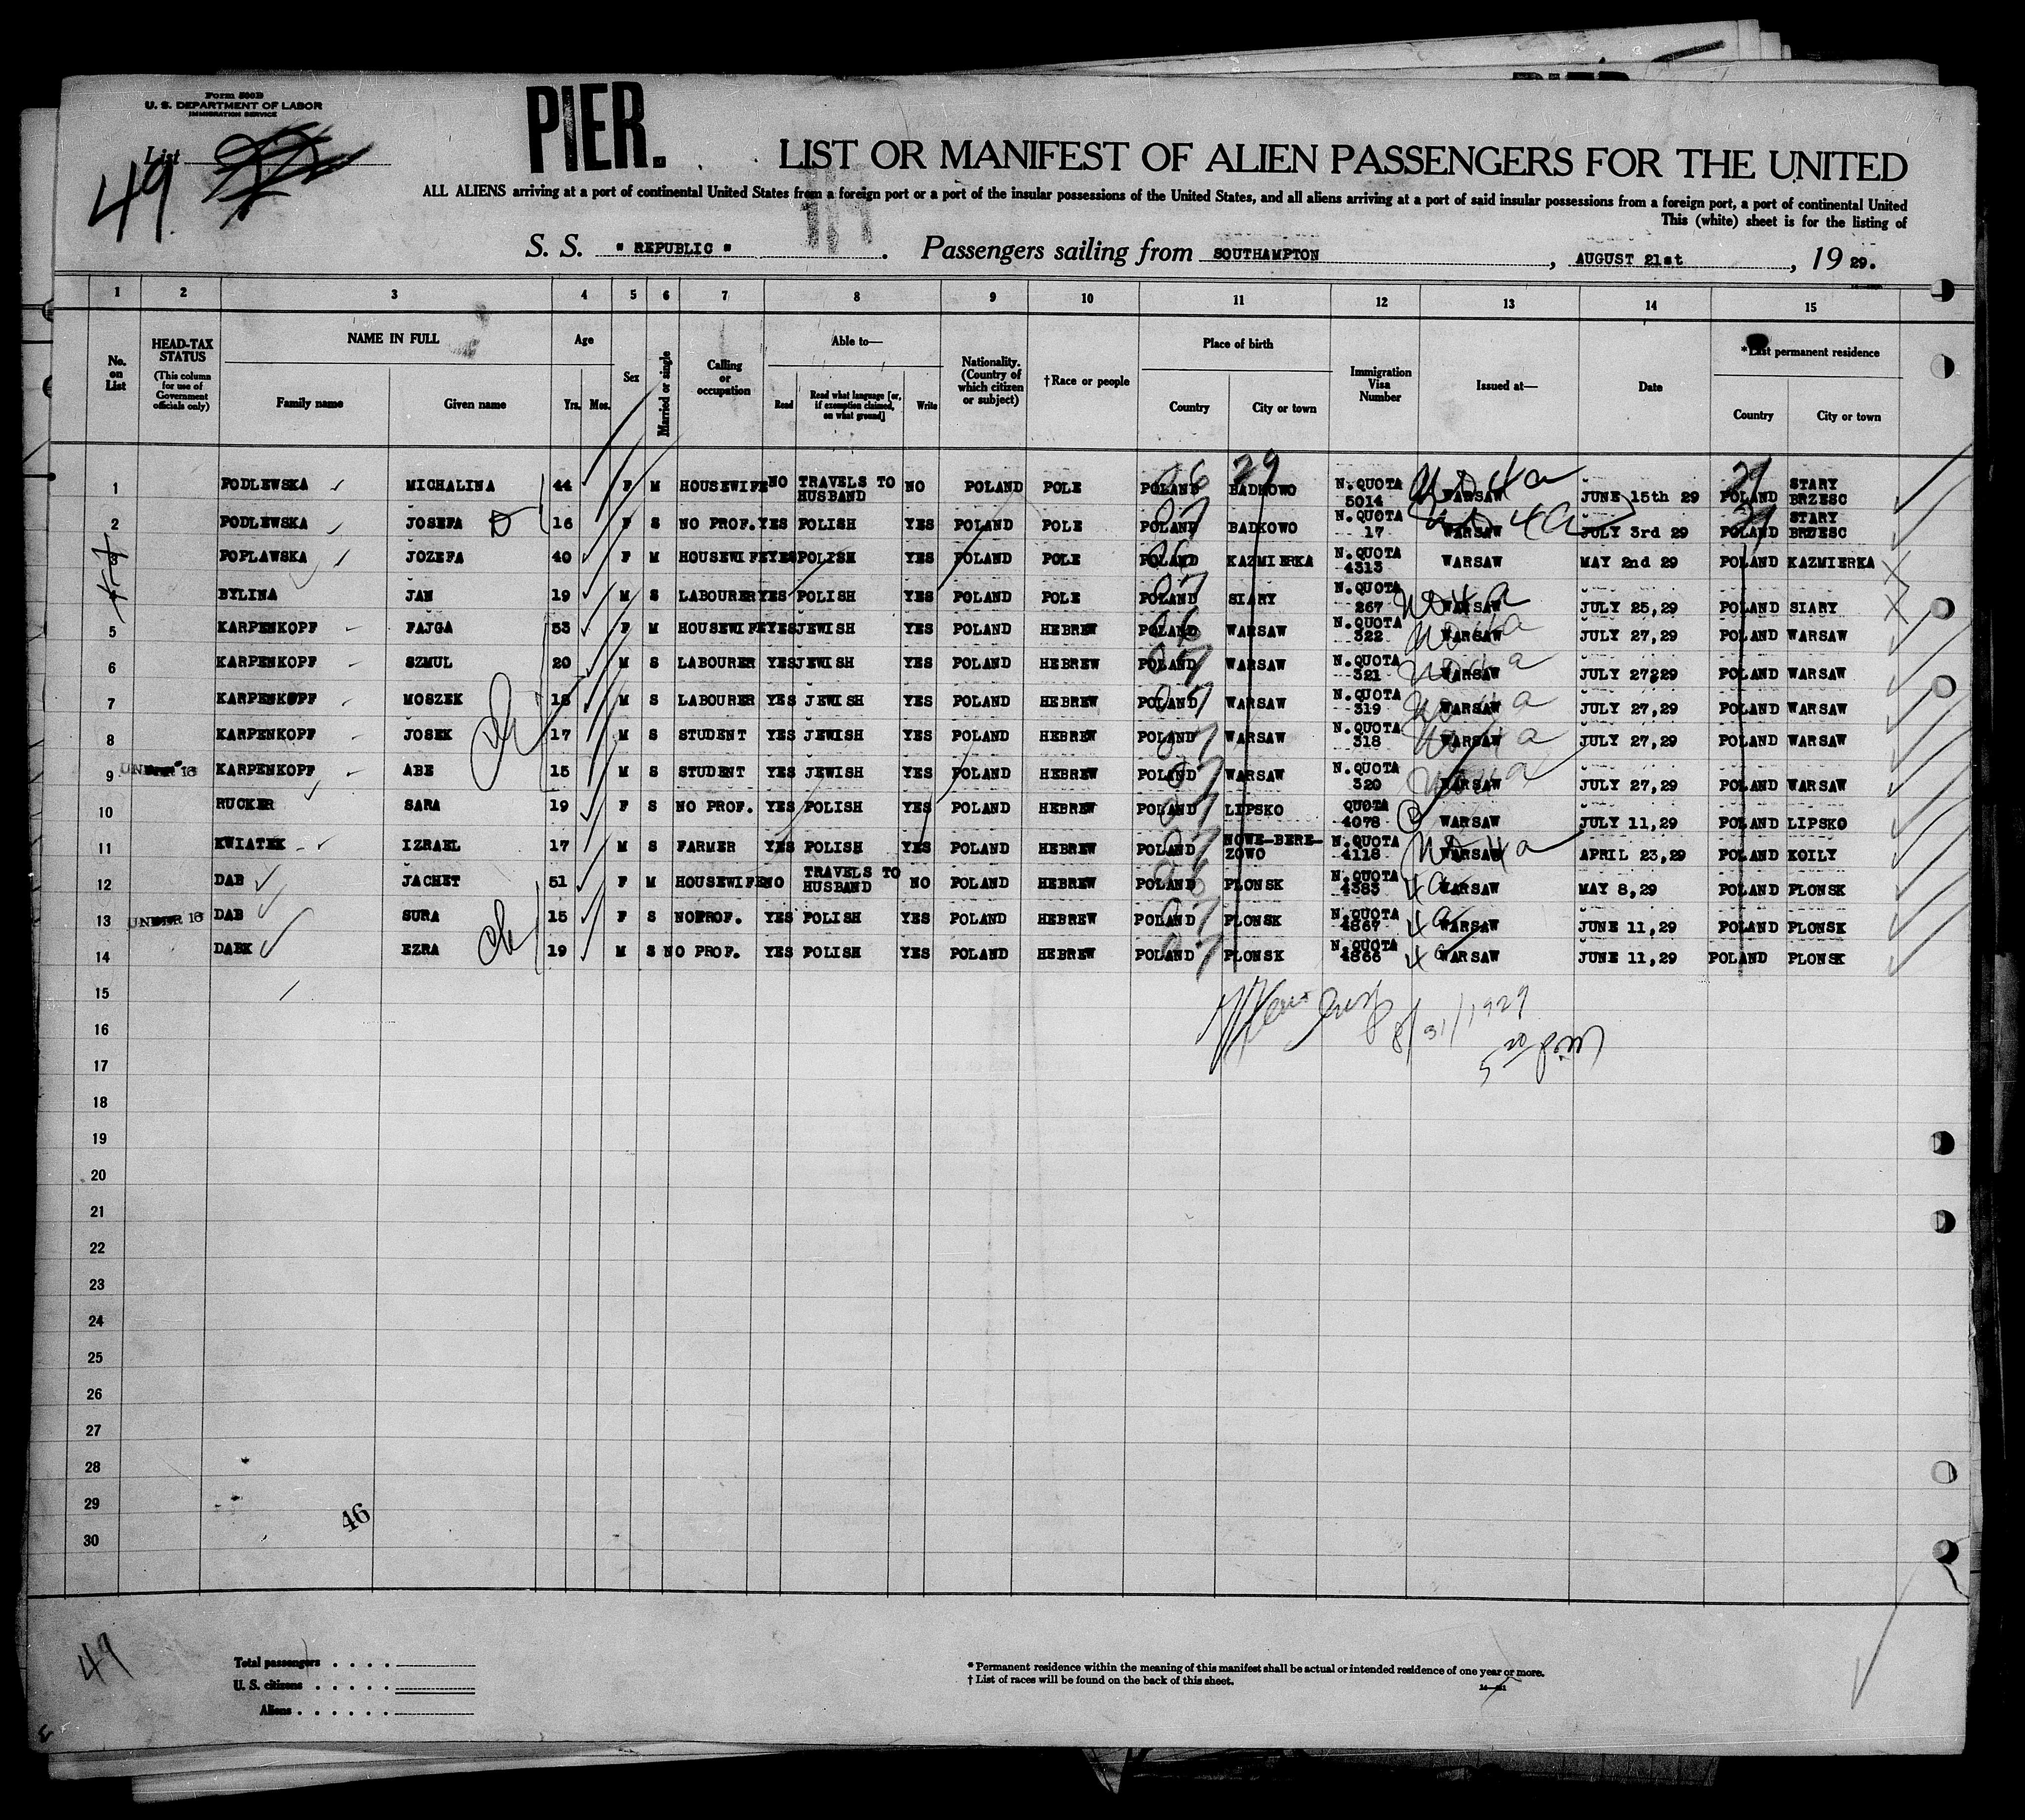 Form 500B
U. S. DEPARTMENT OF LABOR
IMMIGRATION SERVICE
PIER.
List
49
LIST OR MANIFEST OF ALIEN PASSENGERS FOR THE UNITED
ALL ALIENS arriving at a port of continental United States from a foreign port or a port of the insular possessions of the United States, and all aliens arriving at a port of said insular possessions from a foreign port, a port of continental United
This (white) sheet is for the listing of
S. S. " REPUBLIC " . Passengers sailing from SOUTHAMPTON , AUGUST 21st , 19 29.
1 2 3 4 5 6 7 8 9 10 11 12 13 14 15
No. on List
HEAD-TAX STATUS
(This column for use of Government officials only)
NAME IN FULL
Family name Given name
Age
Yrs. Mos.
Sex
Married or single
Calling or occupation
Able to—
Read
Read what language [or, if exemption claimed, on what ground]
Write
Nationality. (Country of which citizen or subject)
†Race or people
Place of birth
Country City or town
Immigration Visa Number
Issued at—
Date
*Last permanent residence
Country City or town
1 PODLEWSKA MICHALINA 44 F M HOUSEWIFE NO TRAVELS TO HUSBAND NO POLAND POLE POLAND BADKOWO N.QUOTA 5014 WARSAW JUNE 15th 29 POLAND STARY BRZESC
2 PODLEWSKA JOSEFA 16 F S NO PROF. YES POLISH YES POLAND POLE POLAND BADKOWO N.QUOTA 17 WARSAW JULY 3rd 29 POLAND STARY BRZESC
3 POPLAWSKA JOZEFA 40 F M HOUSEWIFE YES POLISH YES POLAND POLE POLAND KAZMIERKA N.QUOTA 4313 WARSAW MAY 2nd 29 POLAND KAZMIERKA
4 BYLINA JAN 19 M S LABOURER YES POLISH YES POLAND POLE POLAND SIARY N.QUOTA 267 WARSAW JULY 25,29 POLAND SIARY
5 KARPENKOPF FAJGA 53 F M HOUSEWIFE YES JEWISH YES POLAND HEBREW POLAND WARSAW N.QUOTA 322 WARSAW JULY 27,29 POLAND WARSAW
6 KARPENKOPF SZMUL 20 M S LABOURER YES JEWISH YES POLAND HEBREW POLAND WARSAW N.QUOTA 321 WARSAW JULY 27229 POLAND WARSAW
7 KARPENKOPF MOSZEK 18 M S LABOURER YES JEWISH YES POLAND HEBREW POLAND WARSAW N.QUOTA 319 WARSAW JULY 27,29 POLAND WARSAW
8 KARPENKOPF JOSEK 17 M S STUDENT YES JEWISH YES POLAND HEBREW POLAND WARSAW N.QUOTA 318 WARSAW JULY 27,29 POLAND WARSAW
9 UNDER 16 KARPENKOPF ABE 15 M S STUDENT YES JEWISH YES POLAND HEBREW POLAND WARSAW N.QUOTA 320 WARSAW JULY 27,29 POLAND WARSAW
10 RUCKER SARA 19 F S NO PROF. YES POLISH YES POLAND HEBREW POLAND LIPSKO QUOTA 4078 WARSAW JULY 11,29 POLAND LIPSKO
11 KWIATEK IZRAEL 17 M S FARMER YES POLISH YES POLAND HEBREW POLAND NOWE-BERE-ZOWO N.QUOTA 4118 WARSAW APRIL 23,29 POLAND KOILY
12 DAB JACHET 51 F M HOUSEWIFE NO TRAVELS TO HUSBAND NO POLAND HEBREW POLAND PLONSK N.QUOTA 4383 WARSAW MAY 8,29 POLAND PLONSK
13 UNDER 16 DAB SURA 15 F S NOPROF. YES POLISH YES POLAND HEBREW POLAND PLONSK N.QUOTA 4867 WARSAW JUNE 11,29 POLAND PLONSK
14 DABK EZRA 19 M S NO PROF. YES POLISH YES POLAND HEBREW POLAND PLONSK N.QUOTA 4866 WARSAW JUNE 11,29 POLAND PLONSK
15
8/31/1929
16
17
18
19
20
21
22
23
24
25
26
27
28
29
46
30
49
Total passengers
U. S. citizens
Aliens
* Permanent residence within the meaning of this manifest shall be actual or intended residence of one year or more.
† List of races will be found on the back of this sheet.